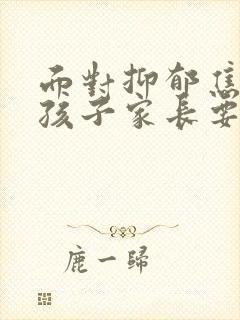 而對抑郁焦
孩子家長要
鹿一歸